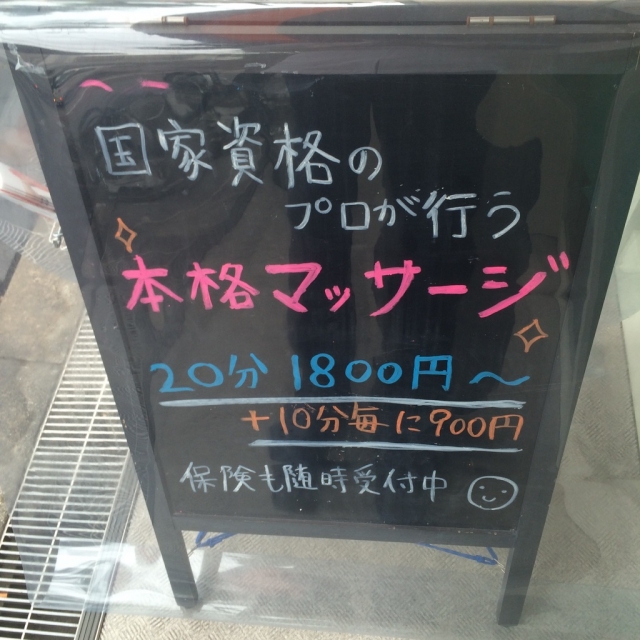 国家資格の
プロが行う
本格マッサージ
20分 1800円～
+10分毎に900円
保険も随時受付中